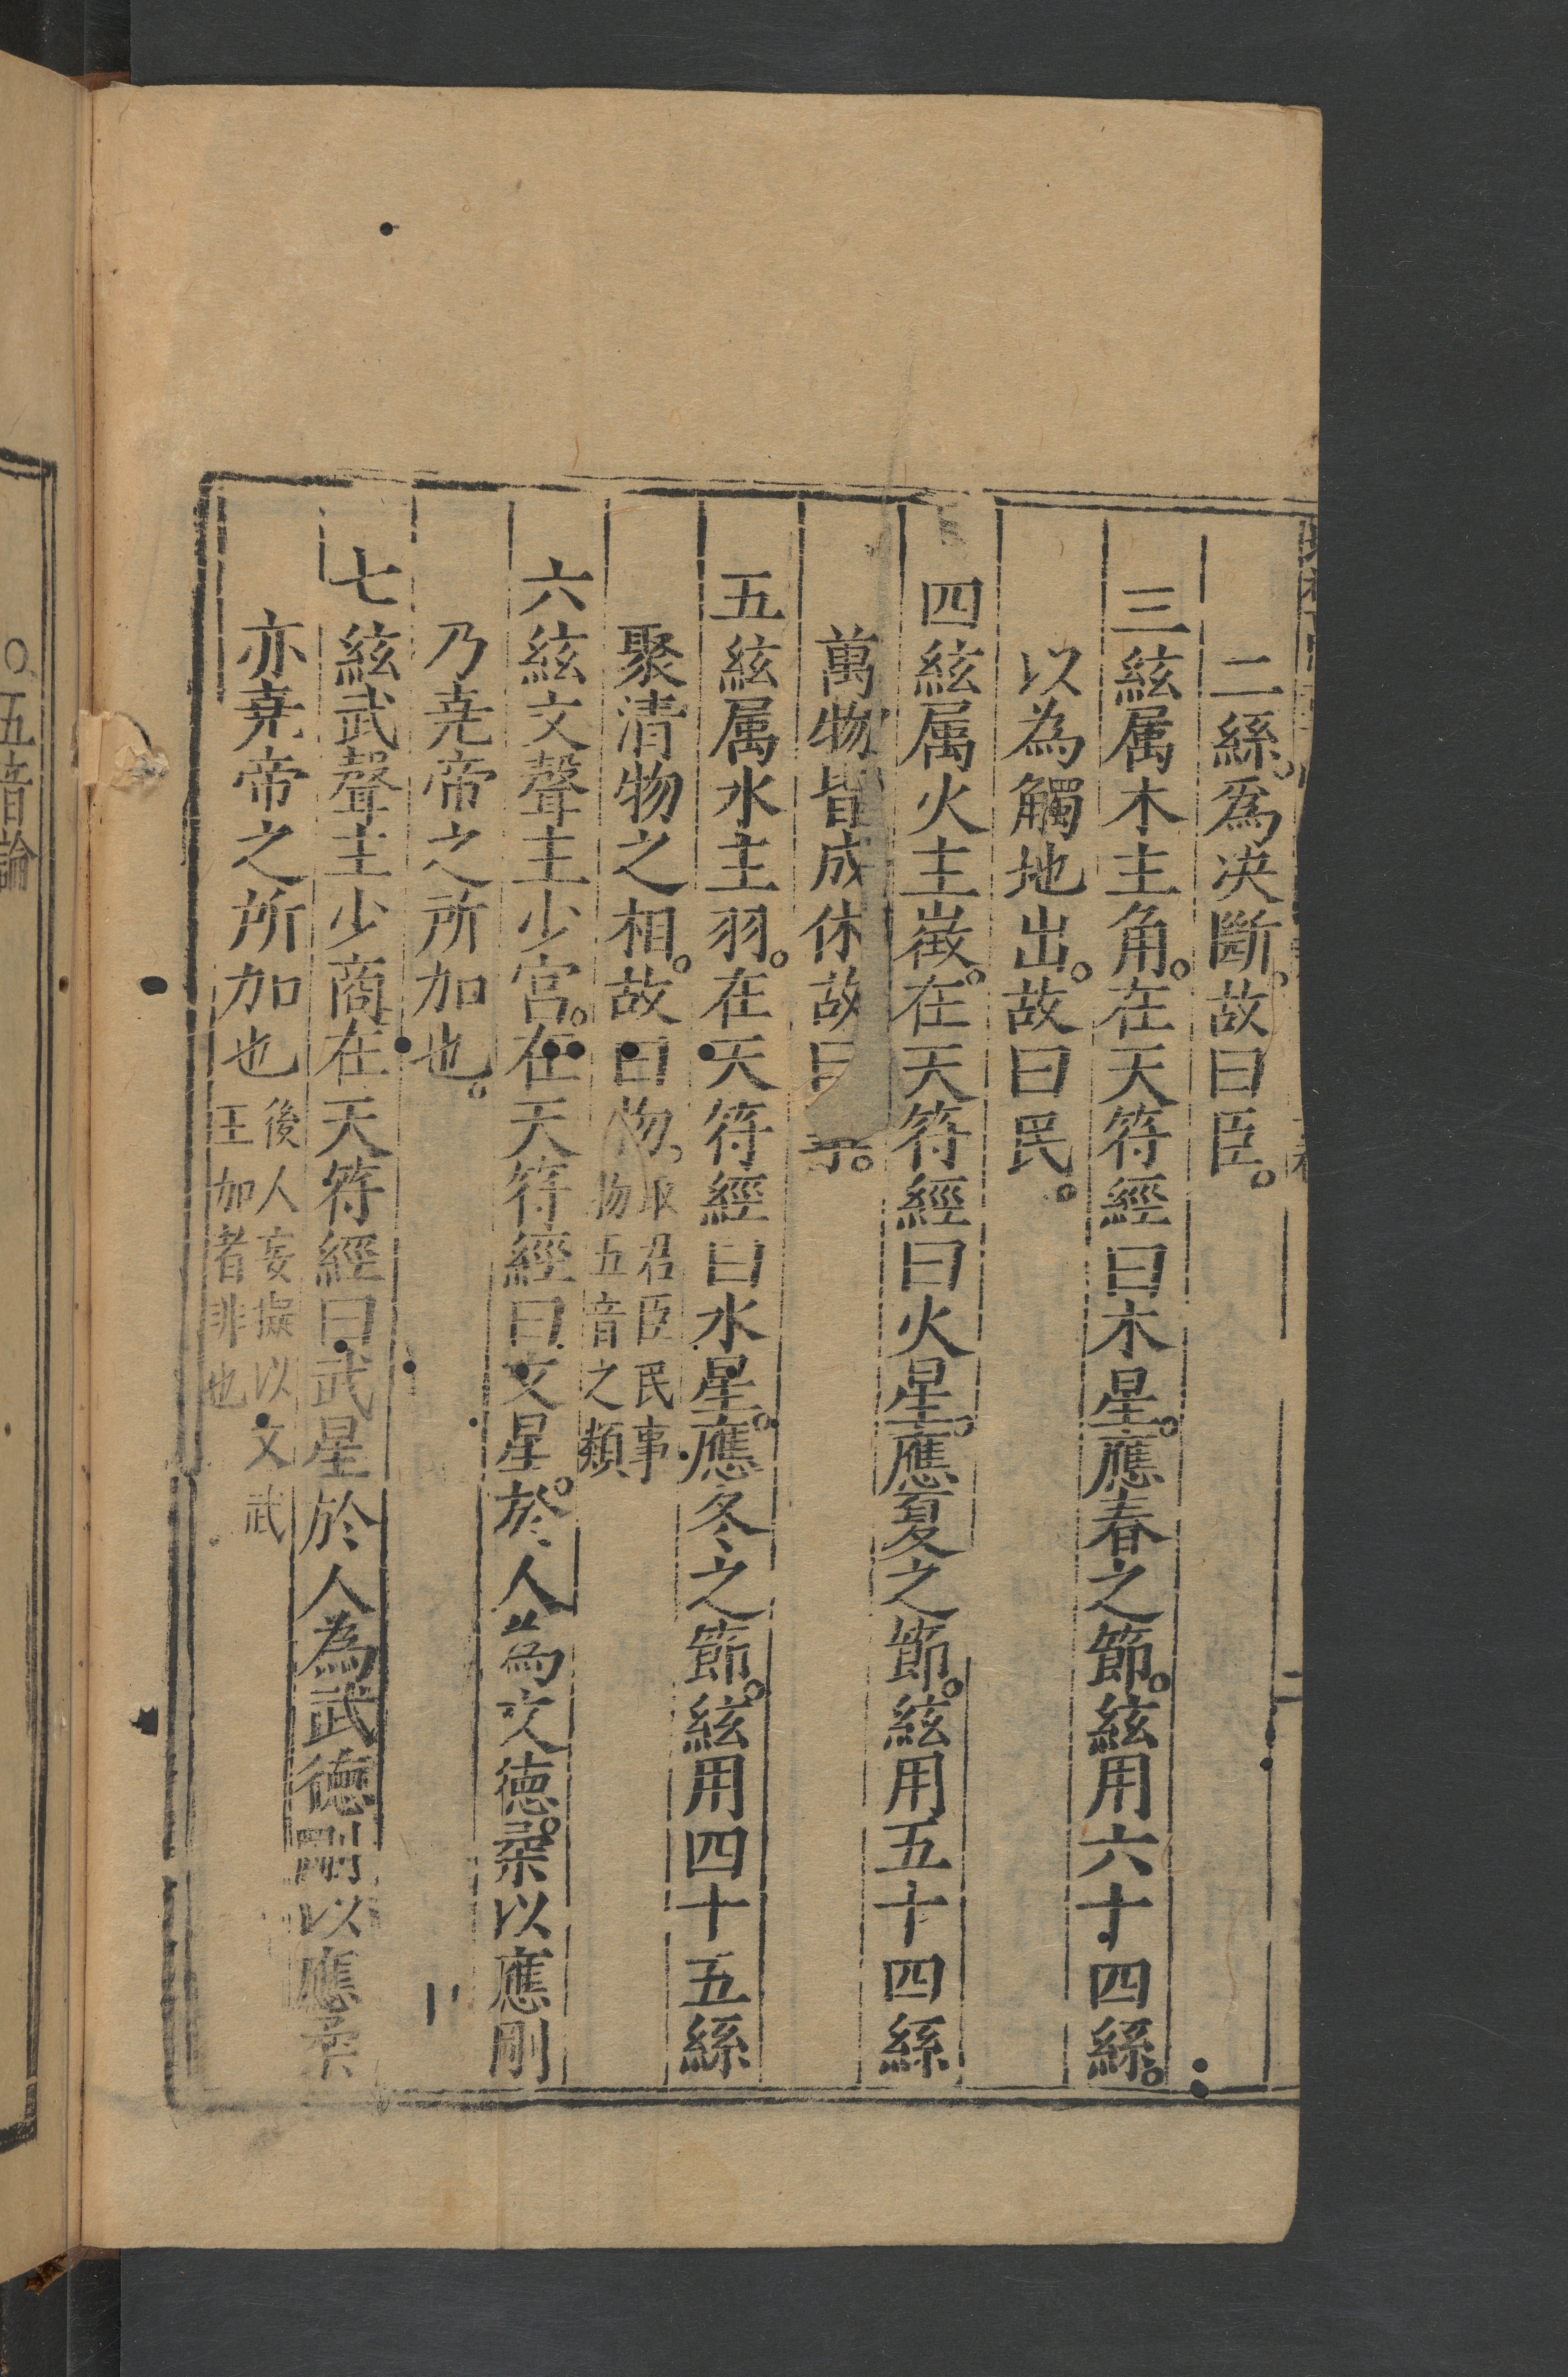 二絲。爲决斷。故曰臣。
三絃属木主角。在天符經曰木星。應春之節。絃用六十四絲。
以為觸地出。故曰民。
四絃属火主徴。在天符經曰火星。應夏之節。絃用五十四絲
萬物皆成休故曰
五絃属水主羽。在天符經曰水星。應冬之節。絃用四十五絲
聚清物之相。故曰物。取君臣民事
物五音之類
六絃文聲主少宮。在天符經曰文星。於人為文德。柔以應剛
乃尭帝之所加也。
七絃武聲主少商在天符經曰武星於人為武德剛以應柔
亦尭帝之所加也後人妄擬以文武
王加者非也
○五音論